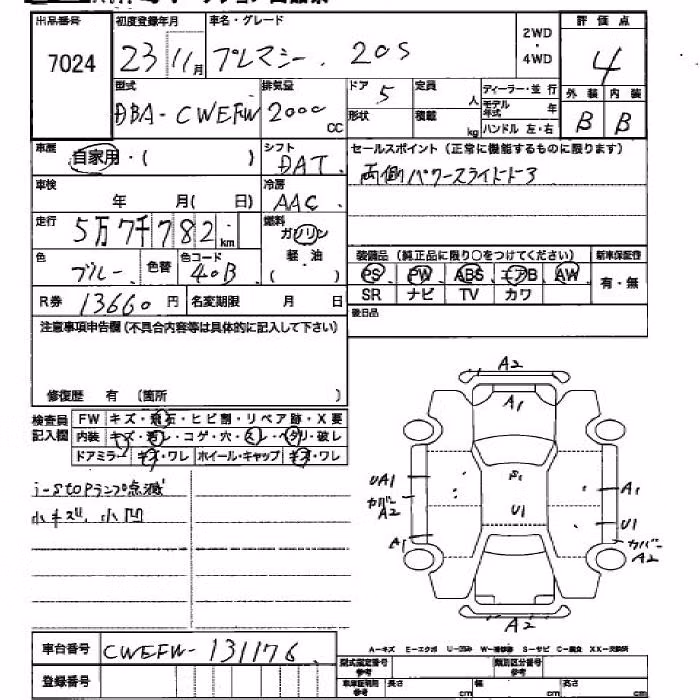 出品番号 初度登録年月 車名・グレード 評価点
7024 23 11月 プレマシー. 20S 2WD・4WD 4
型式 排気量 ドア 定員 ディーラー・並行 外装 内装
DBA-CWEFW 2000 CC 5 人 モデル年式 年 B B
形状 積載 kg ハンドル 左・右
車歴 自家用・( ) シフト DAT セールスポイント (正常に機能するものに限ります)
両側パワースライドドア
車検 年 月( 日) 冷房 AAC
走行 5万7千782km 燃料 ガソリン
軽・油
色 ブルー 色替 色コード 40B
装備品 (純正品に限り○をつけてください) 新車保証書
PS PW ABS エアB AW 有・無
SR ナビ TV カワ
R券 13660円 名変期限 月 日
後日品
注意事項申告欄(不具合内容等は具体的に記入して下さい)
修復歴 有 (箇所 )
検査員記入欄 FW キズ・飛石・ヒビ割・リペア跡・X要
内装 キズ・汚レ・コゲ・穴・スレ・ヘタリ・破レ
ドアミラー キズ・ワレ ホイール・キャップ キズ・ワレ
i-stopランプ点滅
小キズ、小凹
A2
A1
UA1
カバー
A2
A1
S1
U1
A1
U1
カバー
A2
A2
車台番号 CWEFW-131176
登録番号
A-キズ E-エクボ U-凹み W-補修跡 S-サビ C-腐食 XX-交換済
型式指定番号 参考 類別区分番号 参考
車庫証明用 参考 長さ cm 幅 cm 高さ cm